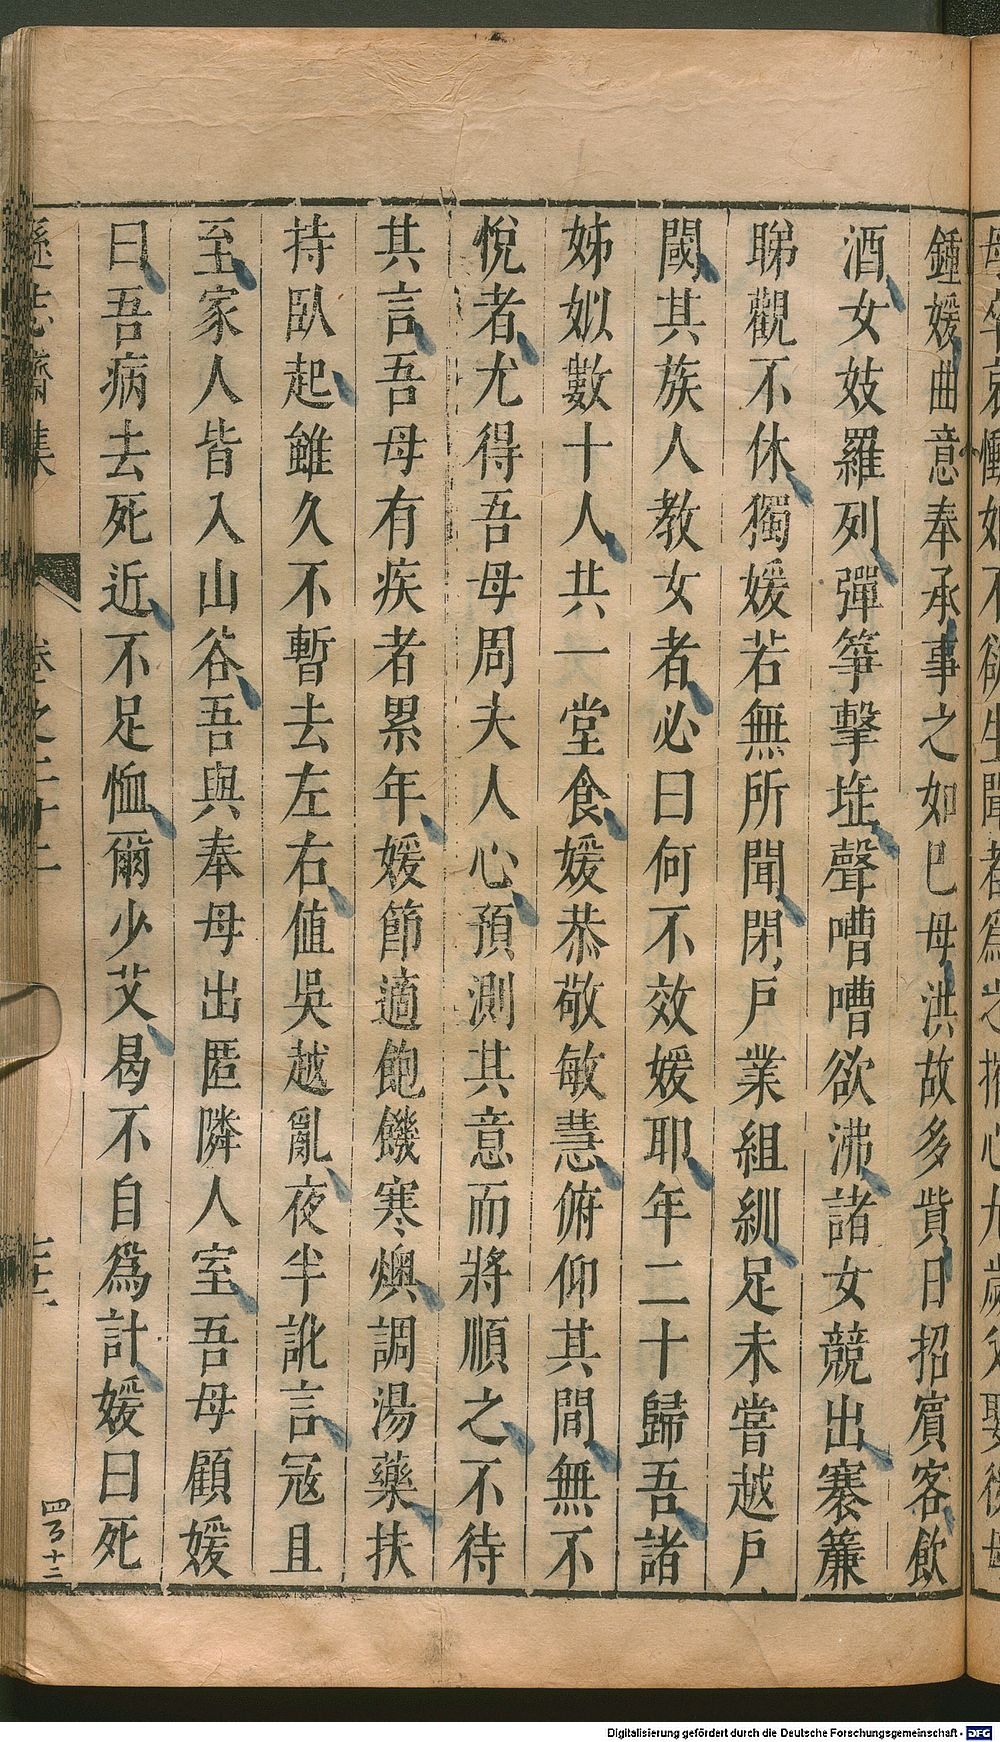 鍾媛曲意奉承事之如巳母洪故多貲日招賓客飲
酒女妓羅列彈箏擊𡊅聲嘈嘈欲沸諸女競出褰簾
睇觀不休獨媛若無所聞閉戶業組紃足未嘗越戶
閾其族人教女者必曰何不效媛耶年二十歸吾諸
姊姒數十人共一堂食媛恭敬敏慧俯仰其間無不
悅者尤得吾母周夫人心預測其意而將順之不待
其言吾母有疾者累年媛節適飽饑寒燠調湯藥扶
持臥起雖久不暫去左右値吳越亂夜半訛言冦且
至家人皆入山谷吾與奉母出匿隣人室吾母顧媛
曰吾病去死近不足恤爾少艾曷不自爲計媛曰死
遜志齋集
卷之二十二
四百十二
Digitalisierung gefördert durch die Deutsche Forschungsgemeinschaft - DFG